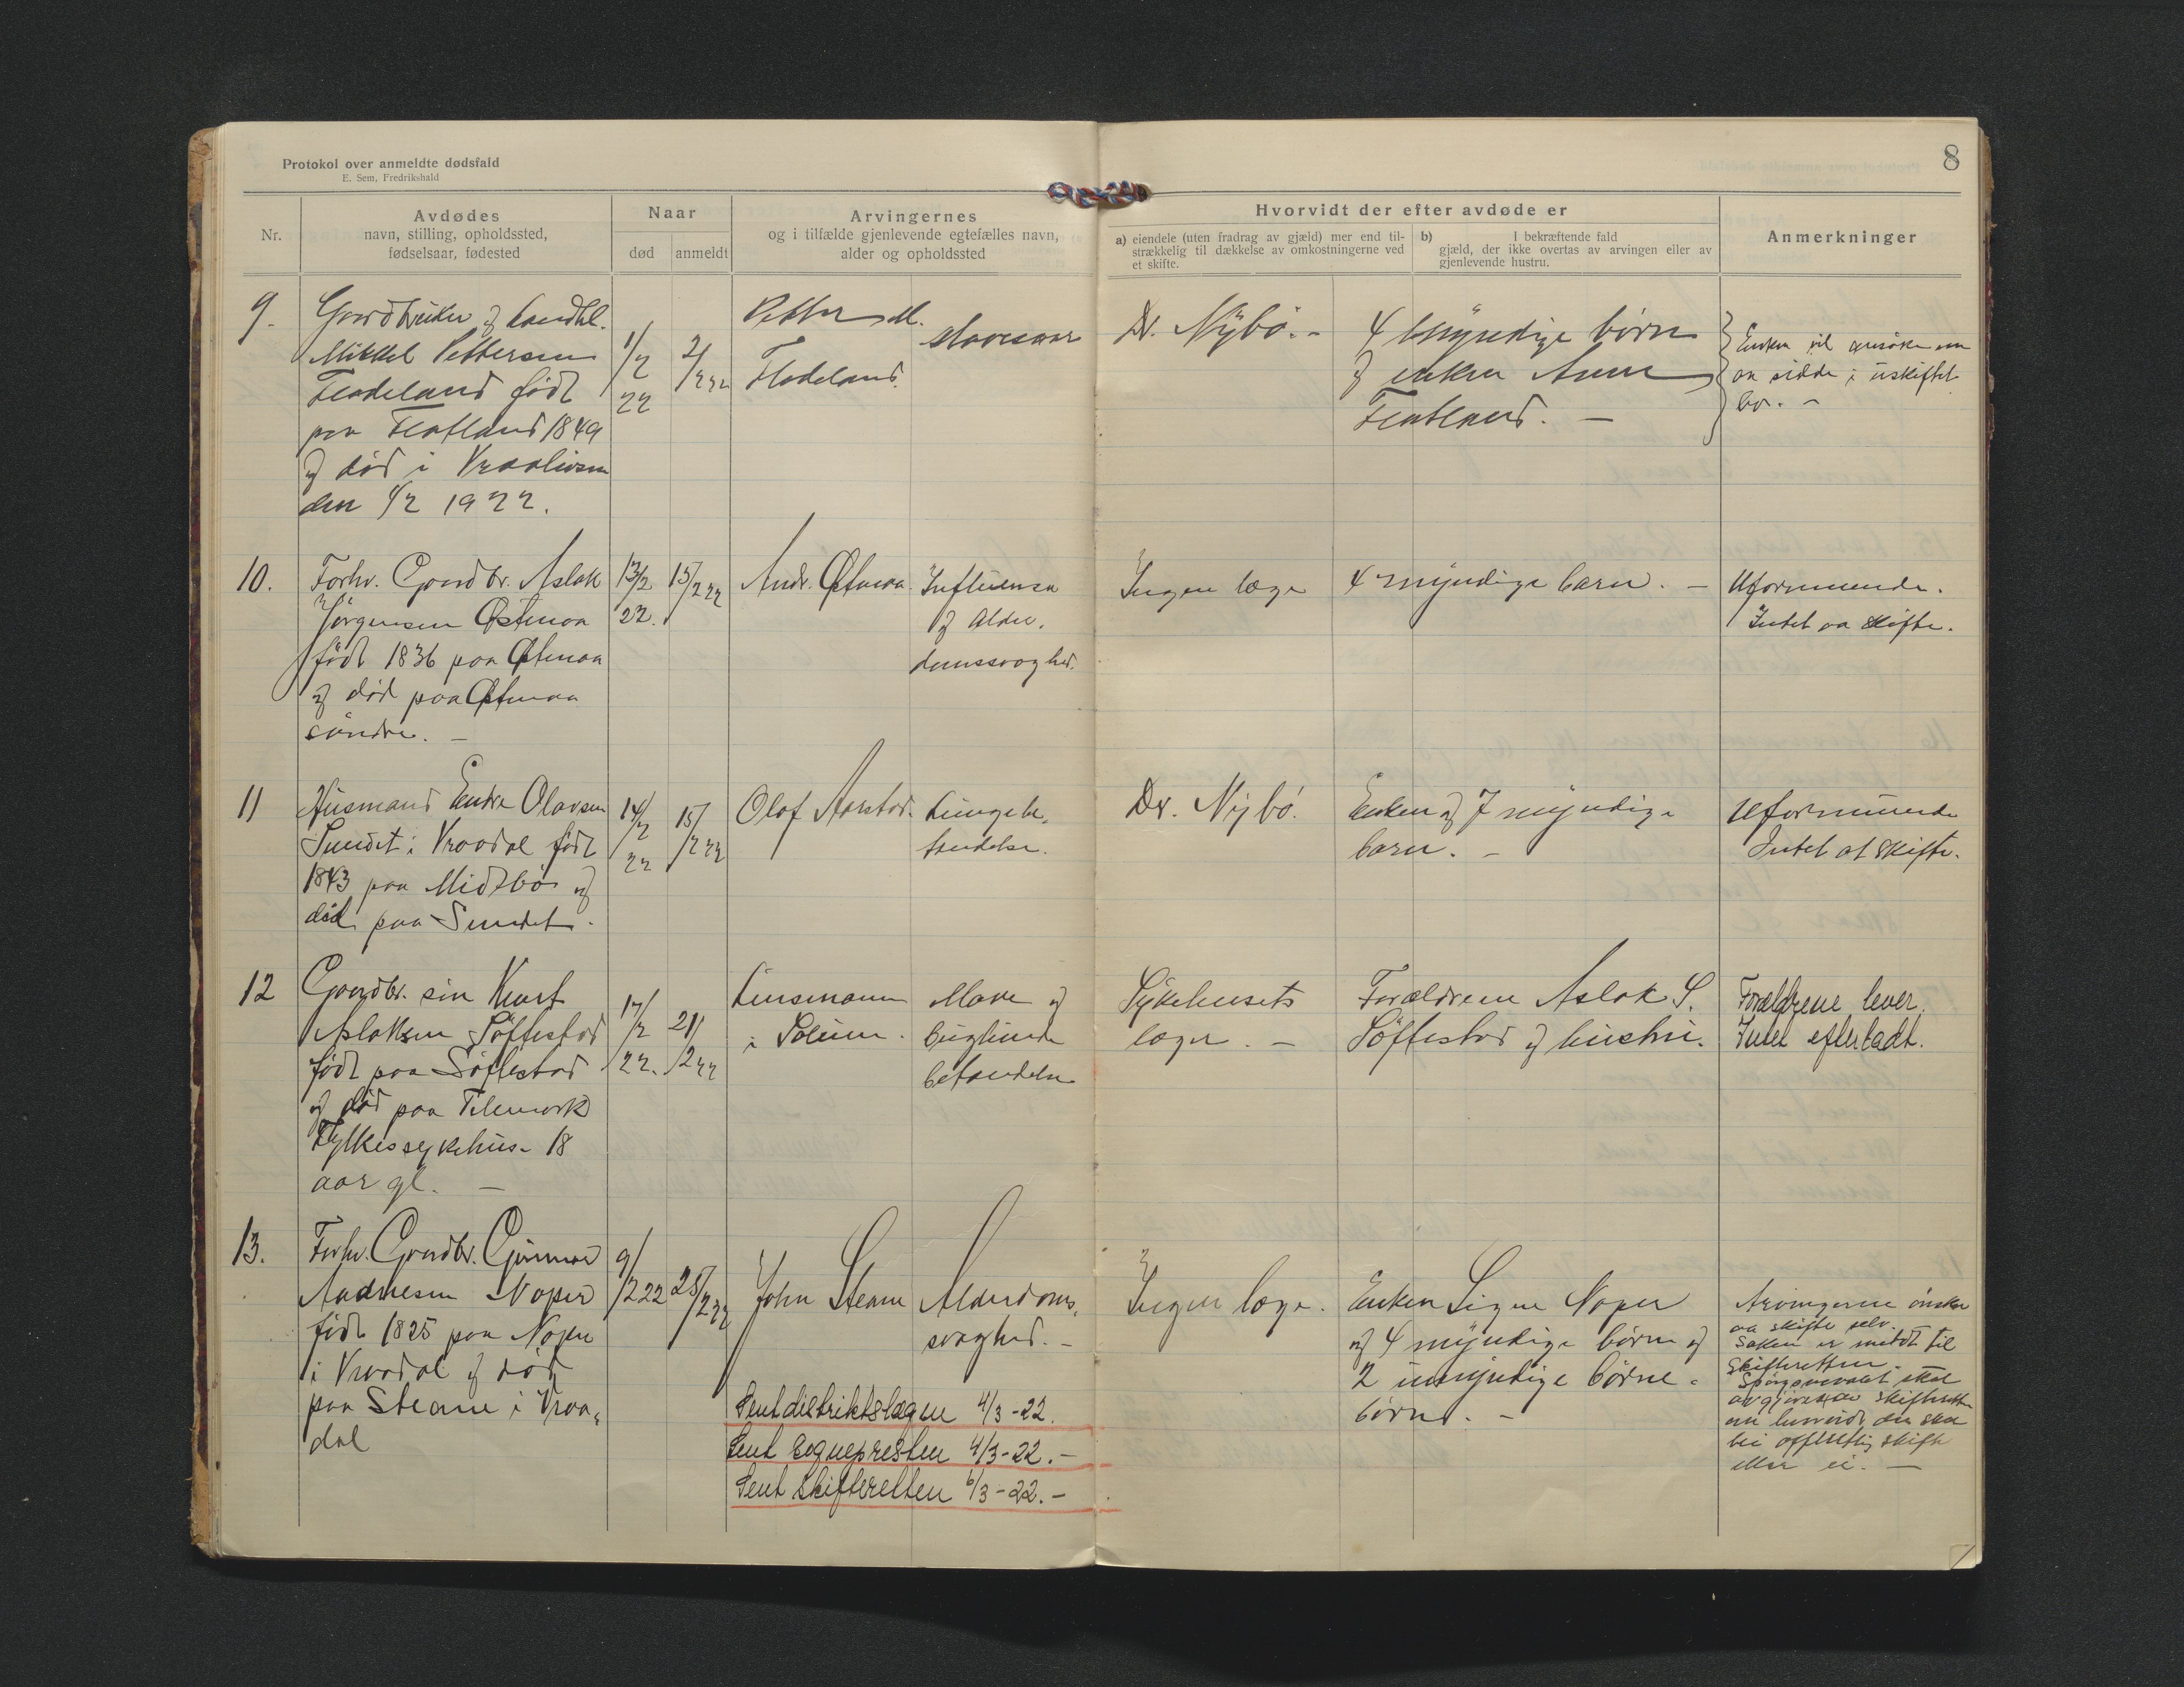 Protokol over anmeldte dødsfald
E. Sem, Fredrikshald
8
Nr.
Avdødes
navn, stilling, opholdssted,
fødselsaar, fødested
Naar
død
anmeldt
Arvingernes
og i tilfælde gjenlevende egtefælles navn,
alder og opholdssted
Hvorvidt der efter avdøde er
a) eiendele (uten fradrag av gjæld) mer end til-
strækkelig til dækkelse av omkostningerne ved
et skifte.
b) I bekræftende fald
gjæld, der ikke overtas av arvingen eller av
gjenlevende hustru.
Anmerkninger
9.
Gaardbruker og handl.
Mikkel Pettersen
født
paa 1849
og død i Vraaliosen
den 1/2 1922.
1/2
22
2/2 22
Petter M.
Mavesaar
Dr. Nÿbö.-
4 börn
og enken Anne
Enken vil ansöke om
aa sidde i uskiftet
bo. -
10.
Forhv. Gaardbr. Aslak
Jörgensen Østmoa
född 1836 paa Østmoa
og död paa Østmoa
söndre. -
13/2
22.
15/2 22
Andr. Østmoa.
Influensa
og Alder.
domssvaghed.
Ingen læge
4 myndige barn. -
Uformuende.
Intet aa skifte.
11
Husmand Endre Olavsen
Sundet i Vraadal födt
1843 paa Midtbö og
död paa Sundet.
14/2
22
15/2 22
Olaf Aarstad.
Lungebe-
tændelse.
Dr. Nÿbö.
Enken og 7 myndige
barn. -
Uformuende
Intet at skifte.
12
Gaardbr. sön Knut
Aslaksen Söftestad
födt paa Söftestad
og död paa Telemark
Fylkessykehus. 18
aar gl. -
17/2
22.
21/2 22
Lensmann
i Solum.
Mave og
bughinde
betændelse
Sykehusets
læge. -
Forældrene Aslak S.
Söftestad og hustru.
Forældrene lever.
Intet efterladt.
13.
Forhv. Gaardbr. Gunnar
Aadnesen Naper
födt 1825 paa Naper
i Vraadal og död
paa Steane i Vraa-
dal
9/2 22
25/2 22
John Steane
Alderdoms-
svaghed. -
Ingen læge.
Enken Signe Naper
og 4 myndige börn og
2 umyndige börne-
börn. -
Arvingerne önsker
aa skifte selv.
Saken er meldt til
Skifteretten.
Spörgsmaalet skal
avgjöres av Skifteretten
om hvorvidt der skal
bli offentlig skifte
eller ei. -
Sent distriktslægen 4/3-22.
Sent Sognepresten 4/3-22.-
Sent Skifteretten 6/3-22.-